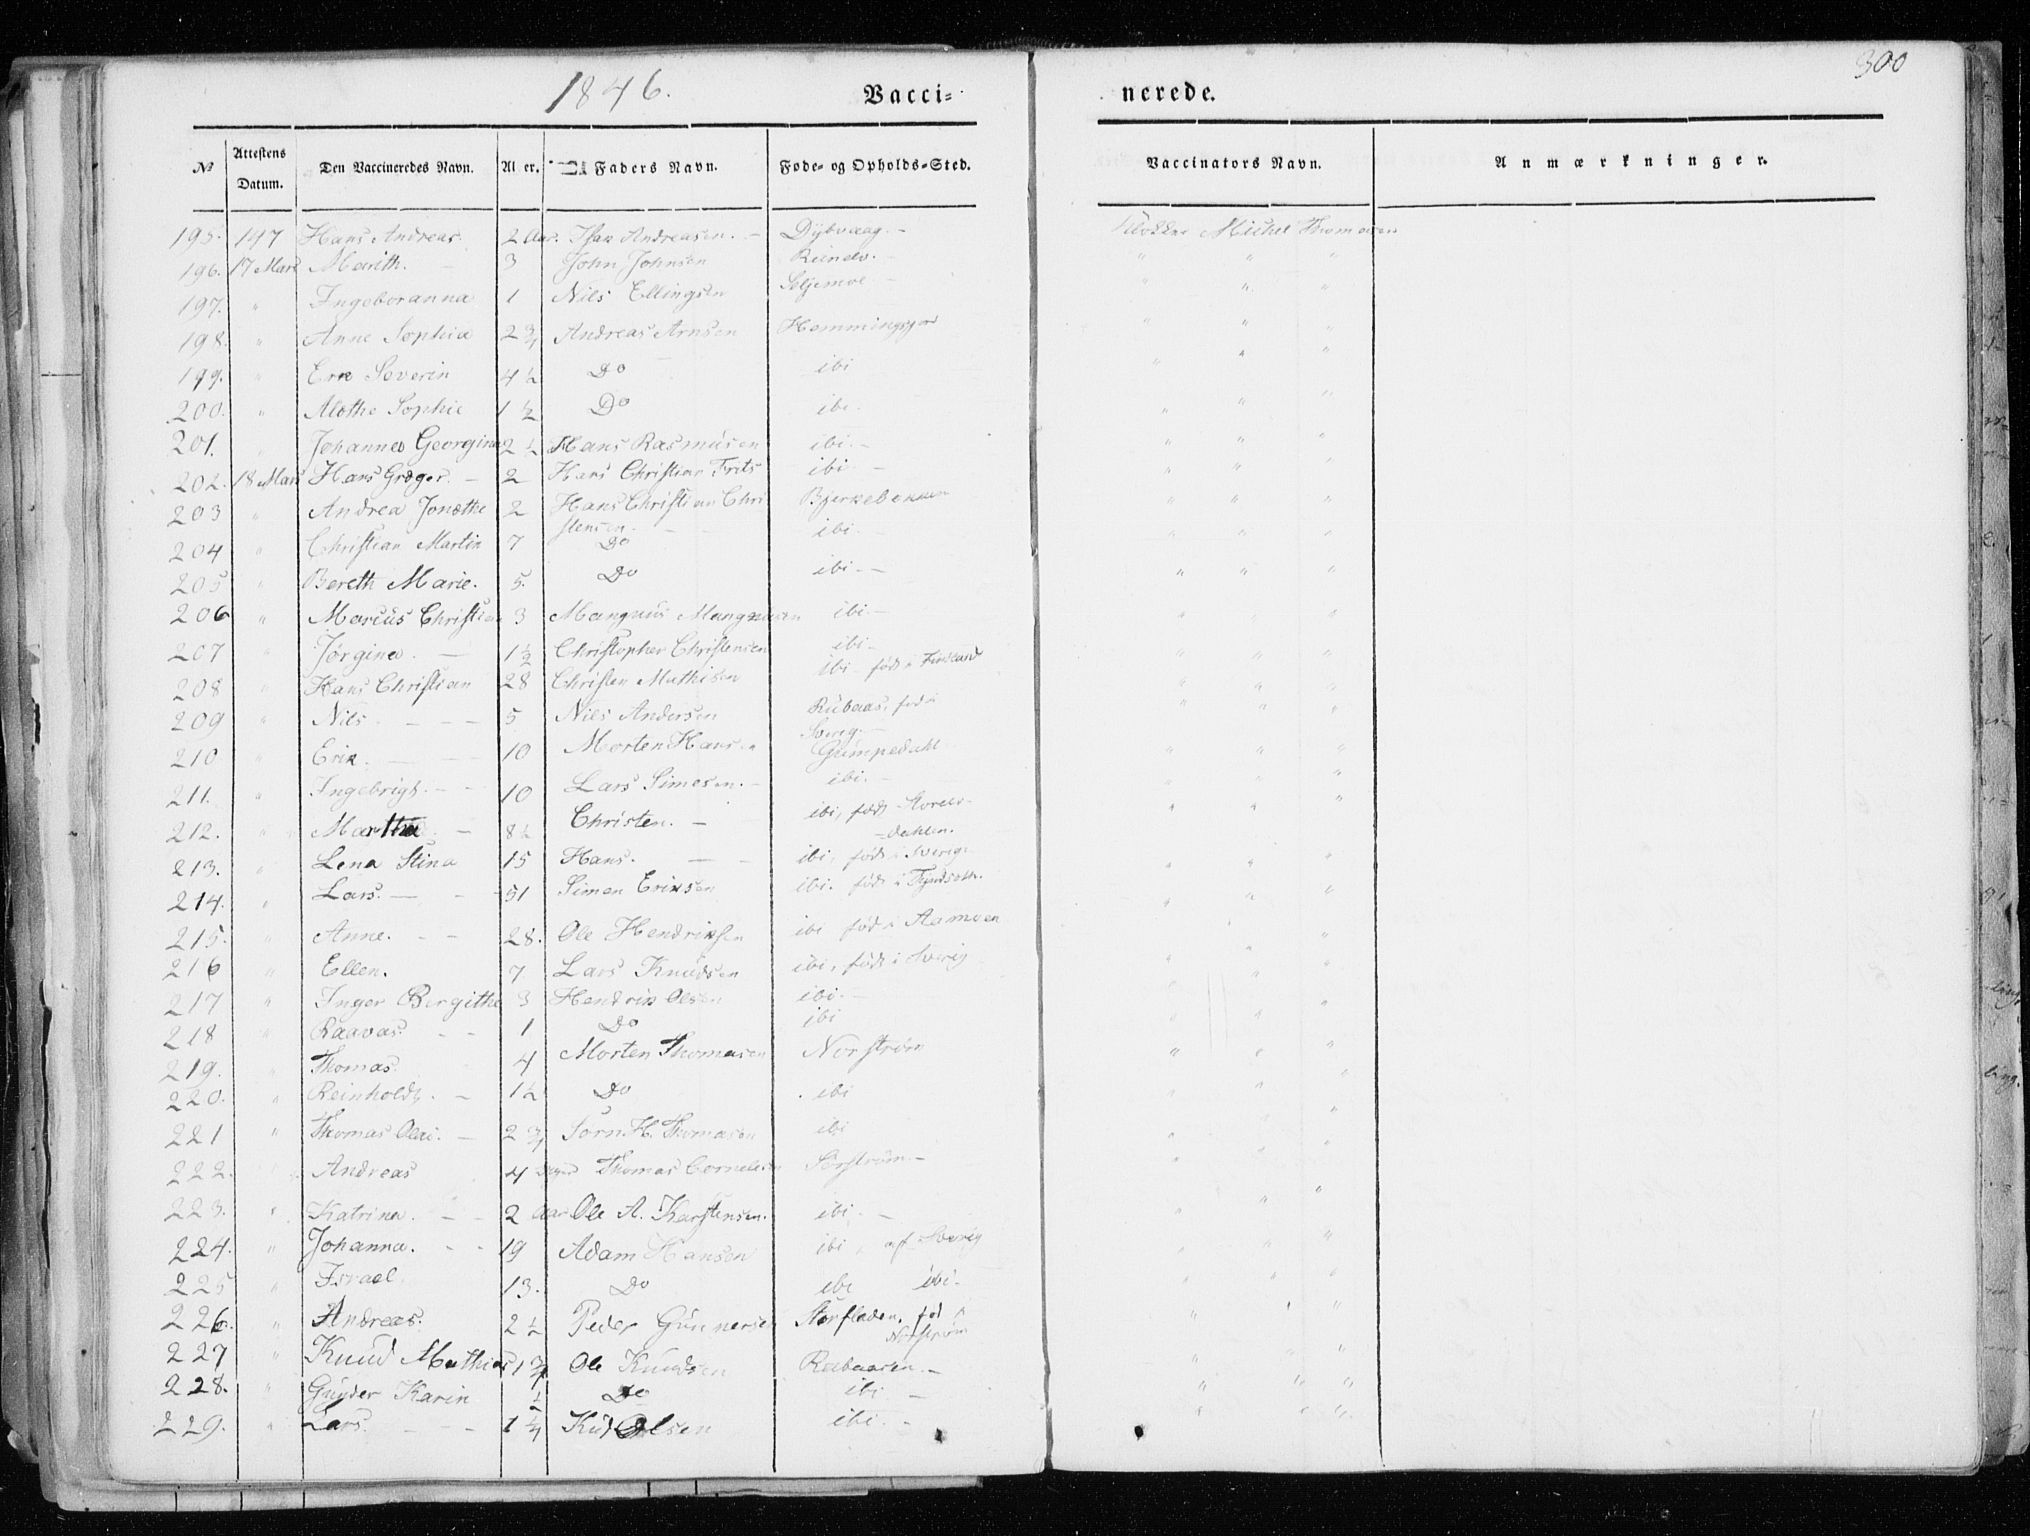 1846.
Vacci=
nerede.
300
№ Attestens Datum. Den Vaccineredes Navn. Al er. Faders Navn. Føde- og Opholds-Sted. Vaccinators Navn. Anmærkninger.
195. 147 Hans Andreas. 2 Aar. Isak Andreasen. - Dybvaag. - Michel Thomasen
196. 17 Mars Marith. - 3 John Johnsen " " "
197. " Ingeboranna 1 Nils Ellingsen Seljemoe - " " "
198. " Anne Sophia 2 3/4 Andreas Arnsen " " "
199. " Erik Severin 4 ½ Do ibi " " "
200. " Alethe Sophie 1 ½ Do ibi. " " "
201. " Johannes Georgina 2 ½ Hans Rasmusen ibi. - " " "
202. 18 Mars Hans Grøger. - 2 Hans Christian Frits ibi - " " "
203 " Andrea Jonethe 2 Hans Christian Chri Bjerkebakken " " "
stensen. - -
204 " Christian Martin 7 Do ibi. - " " "
205 " Bereth Marie. 5. Do ibi. - " " "
206 " Marcus Christian 3 Mangnus Mangnusen ibi. - " " "
207 " Jørgina. - 1 ½ Christopher Christensen ibi. - " " "
208 " Hans Christian 28 Christen Mathisen ibi - født i Finland " " "
209 " Nils. - - - 5 Nils Andersen Rubaas, fød i " " "
Sverig. -
210 " Erik. - - 10 Morten Hansen Gumpedahl " " "
211. " Ingebrigt. - - 10 Lars Simesen. - ibi. - " " "
212. " Martha. - 8 ½ Christen. - ibi, født " " "
=dahlen.
213. " Lena Stina 15 Hans. - - ibi, født i Sverig " " "
214. " Lars. - - - 51 Simen Eriksen ibi. født i " " "
215. " Anne. - - 28. Ole Hendriksen ibi født i " "
216 " Ellen. 7 Lars Knudsen ibi, født i Sverig " " "
217 " Inger Bergithe 3 Hendrik Olsen ibi. - " " "
218 " Raavas. - - 1 Do ibi " "
219. " Thomas. 4 Morten Thomasen Norstrøm " " "
220. " Reinholdt. - 1 ½ Do ibi " " "
221 " Thomas Olai. - 2 3/4 Sørn H. Thomasen ibi " " "
222. " Andreas 4 Thomas Cornelesen Sørstrøm - " "
223. " Katrina. - - 2 Aar Ole A. Karstensen. ibi. - " " "
224. " Johanna. - - 19 Adam Hansen ibi, af Sverig " " "
225 " Israel. 13. Do ibi ibi. " " "
226. " Andreas. 2 ½ Peder Gunnersen Storfladen, fød i " " "
Norstrøm
227 " Knud Mathias 1 3/4 Ole Knudsen Rubaasen. - " " "
228. " Karin ½ Do ibi - " " "
229. " Lars. - - 1 ¼ Olsen ibi. - " " "